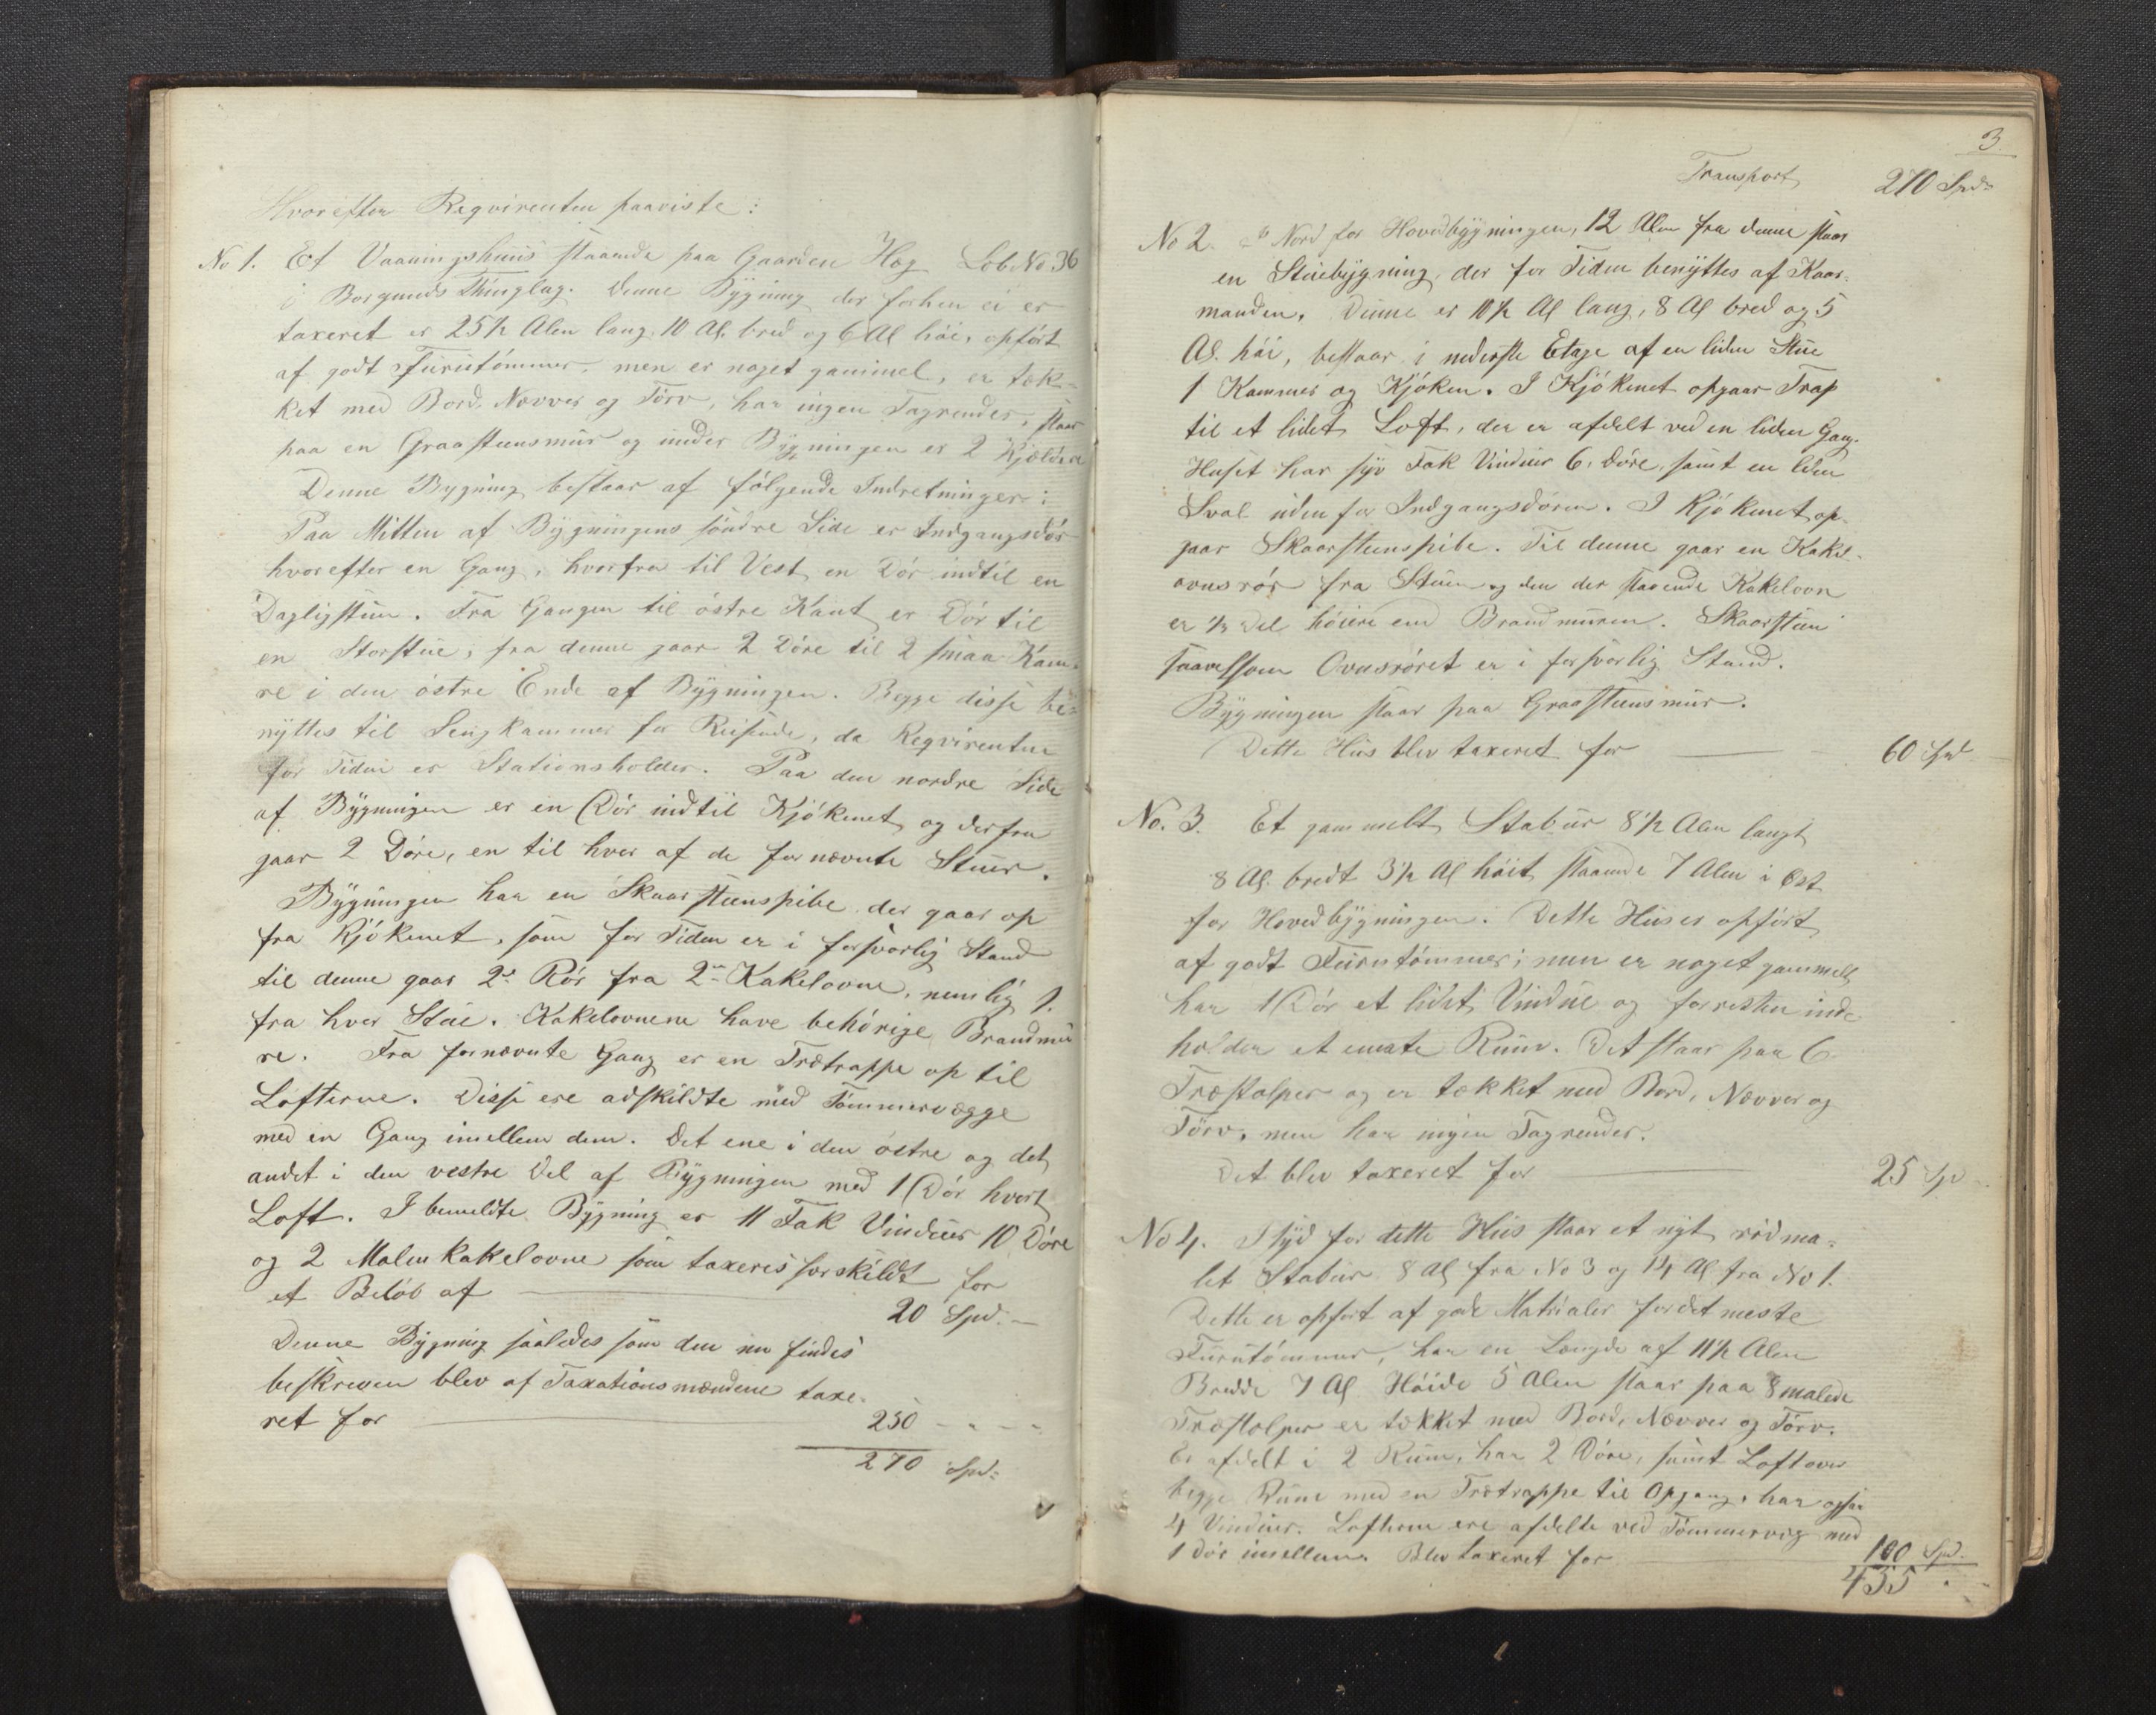 Hvorefter Reqvirenten paaviste:
No 1. Et Vaaningshuus staaende paa Gaarden Hæg Løb No 36
i Borgunds Thinglag. Denne Bygning der forhen ei er
taxeret er 25½ Alen lang 10 Al. bred og 6 Al høi, opført
af godt Furutømmer, men er noget gammel, er tæk-
ket med Bord, Næver og Törv, har ingen Tagrender, staar
paa en Graasteensmür og under Bygningen er 2 Kjældere
Denne Bygning bestaar af følgende Indretninger:
Paa Mitten af Bygningens söndre Side er Indgangsdör
hvorefter en Gang, hvorfra til Vest en Dör indtil en
Dagligstue. Fra Gangen til östre Kant er Dör til
en Storstue, fra denne gaar 2 Döre til 2 smaa Kam-
re i den östre Ende af Bygningen. Begge disse be-
nyttes til Sengkammer for Reisende, da Reqvirenten
for Tiden er Stationsholder. Paa den nordre Side
af Bygningen er en Dör indtil Kjökenet og derfra
gaar 2 Döre, en til hver af de fornævnte Stuer.
Bygningen har en Skaarsteenspibe der gaar op
fra Kjökenet, som for Tiden er i forsvarlig Stand
til denne gaar 2de Rör fra 2de Kakelovne, nemlig 1.
fra hver Stue. Kakelovnene have behörige Brandmü
re. Fra fornævnte Gang er en Trætrappe op til
Lofterne. Disse ere adskildte med Tömmervægge
med en Gang imellem dem. Det ene i den östre og det
andet i den vestre Del af Bygningen med 1 Dör hvert
Loft. I bemeldte Bygning er 11 Fak Vinduer 10 Döre
og 2 Malmkakelovne som taxeres særskildt for
et Belöb af 20 Spd. —
Denne Bygning saaledes som den nu findes
beskreven blev af Taxationsmændene taxe-
ret for 250 - " - -
270 Spd.
3.
Transport 270 Spd.
No 2. Nord for Hovedbygningen, 12 Alen fra denne staar
en Stuebygning, der for Tiden benyttes af Kaar-
manden. Denne er 10½ Al lang, 8 Al bred og 5
Al. höi, bestaar i nederste Etage af en liden Stue
1 Kammer og Kjöken. I Kjökenet opgaar Trap
til et lidet Loft, der er afdelt ved en liden Gang.
Huset har syv Fak Vinduer 6. Döre, samt en liden
Sval uden for Indgangsdören. I Kjökenet op-
gaar Skaarsteenspibe. Til denne gaar en Kakel-
ovnsrör fra Stuen og den der staaende Kakelovn
er ½ Del höiere end Brandmuren. Skaarsteen
saavelsom Ovnsröret er i forsvarlig Stand.
Bygningen staar paa Graasteensmür.
Dette Hus blev taxeret for 60 Spd
No. 3. Et gammelt Stabur 8½ Alen langt
8 Al. bredt 3½ Al höit staaende 7 Alen i Øst
for Hovedbygningen. Dette Hus er opfört
af godt Furutömmer, men er noget gammelt
har 1 Dör et lidet Vindue og forresten inde
holder et eneste Rum. Det staar paa 6
Træstolper og er tækket med Bord, Næver og
Törv, men har ingen Tagrender.
Det blev taxeret for 25 Spd
No 4. I Syd for dette Hus staar et nyt rödma-
let Stabur 8 Al fra No 3 og 14 Al fra No 1.
Dette er opfört af gode Matrialer fordet meste
Furutömmer, har en Længde af 11½ Alen
Bredde 7 Al Höide 5 Alen staar paa 8 malede
Træstolper er tækket med Bord, Næver og Törv.
Er afdelt i 2 Rum, har 2 Döre, samt Loft over
begge Rum med en Trætrappe til Opgang, har ogsaa
4 Vinduer. Lofterne ere afdelte ved Tömmervæg med
1 Dör imellem. Blev taxeret for 100 Spd.
455 "